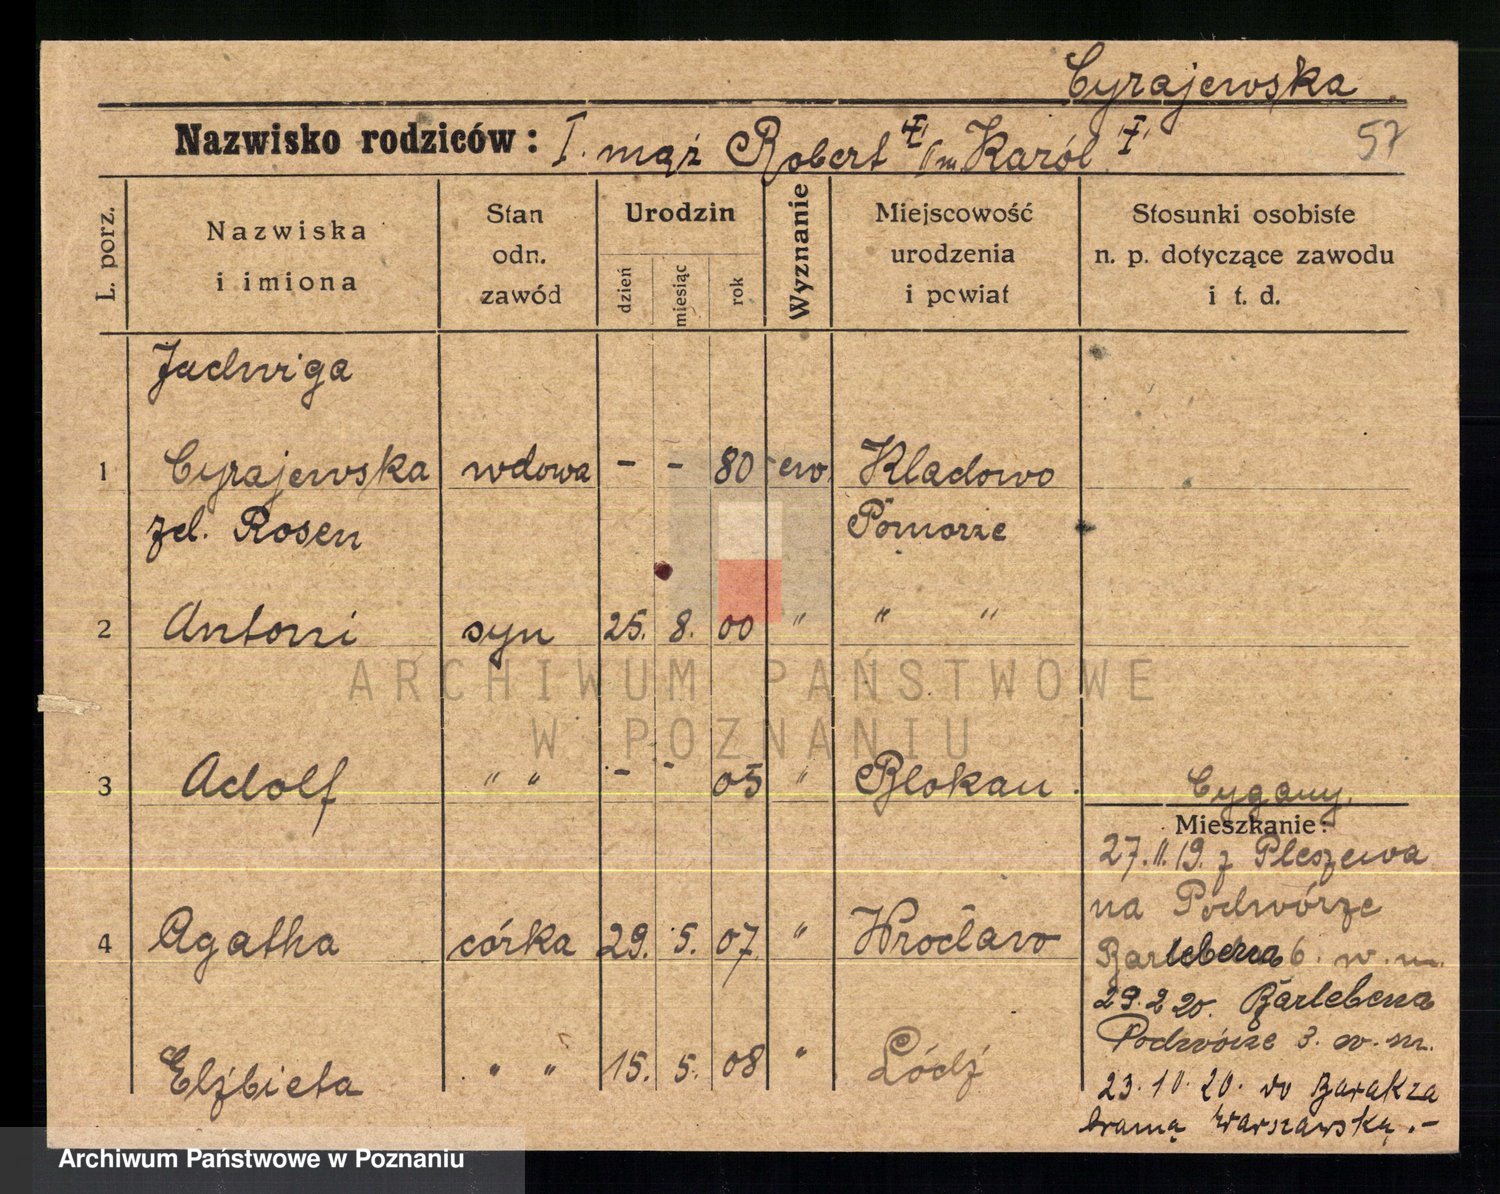 Cyrajewska
Nazwisko rodziców: I. mąż Robert Karól
57
L. porz.
Nazwiska
i imiona
Stan
odn.
zawód
Urodzin
dzień
miesiąc
rok
Wyznanie
Miejscowość
urodzenia
i powiat
Stosunki osobiste
n. p. dotyczące zawodu
i t. d.
Jadwiga
1 Cyrajewska wdowa - - 80 ew. Kladowo
zd. Rosen Pomorze
2 Antoni syn 25. 8. 00 " " "
ARCHIWUM PAŃSTWOWE
W POZNANIU
3 Adolf " " - - 05 " Blokau.
4 Agatha córka 29. 5. 07 " Wrocław
Elżbieta " " 15. 5. 08 " Łódź
Cygany.
Mieszkanie:
27.11.19. z Pleszewa
na Podwórze
Barlebena 6. w. m.
29.2 20. Barlebena
Podwórze 3. w. m.
23.10.20. do Baraku za
bramą Warszawską.-
Archiwum Państwowe w Poznaniu